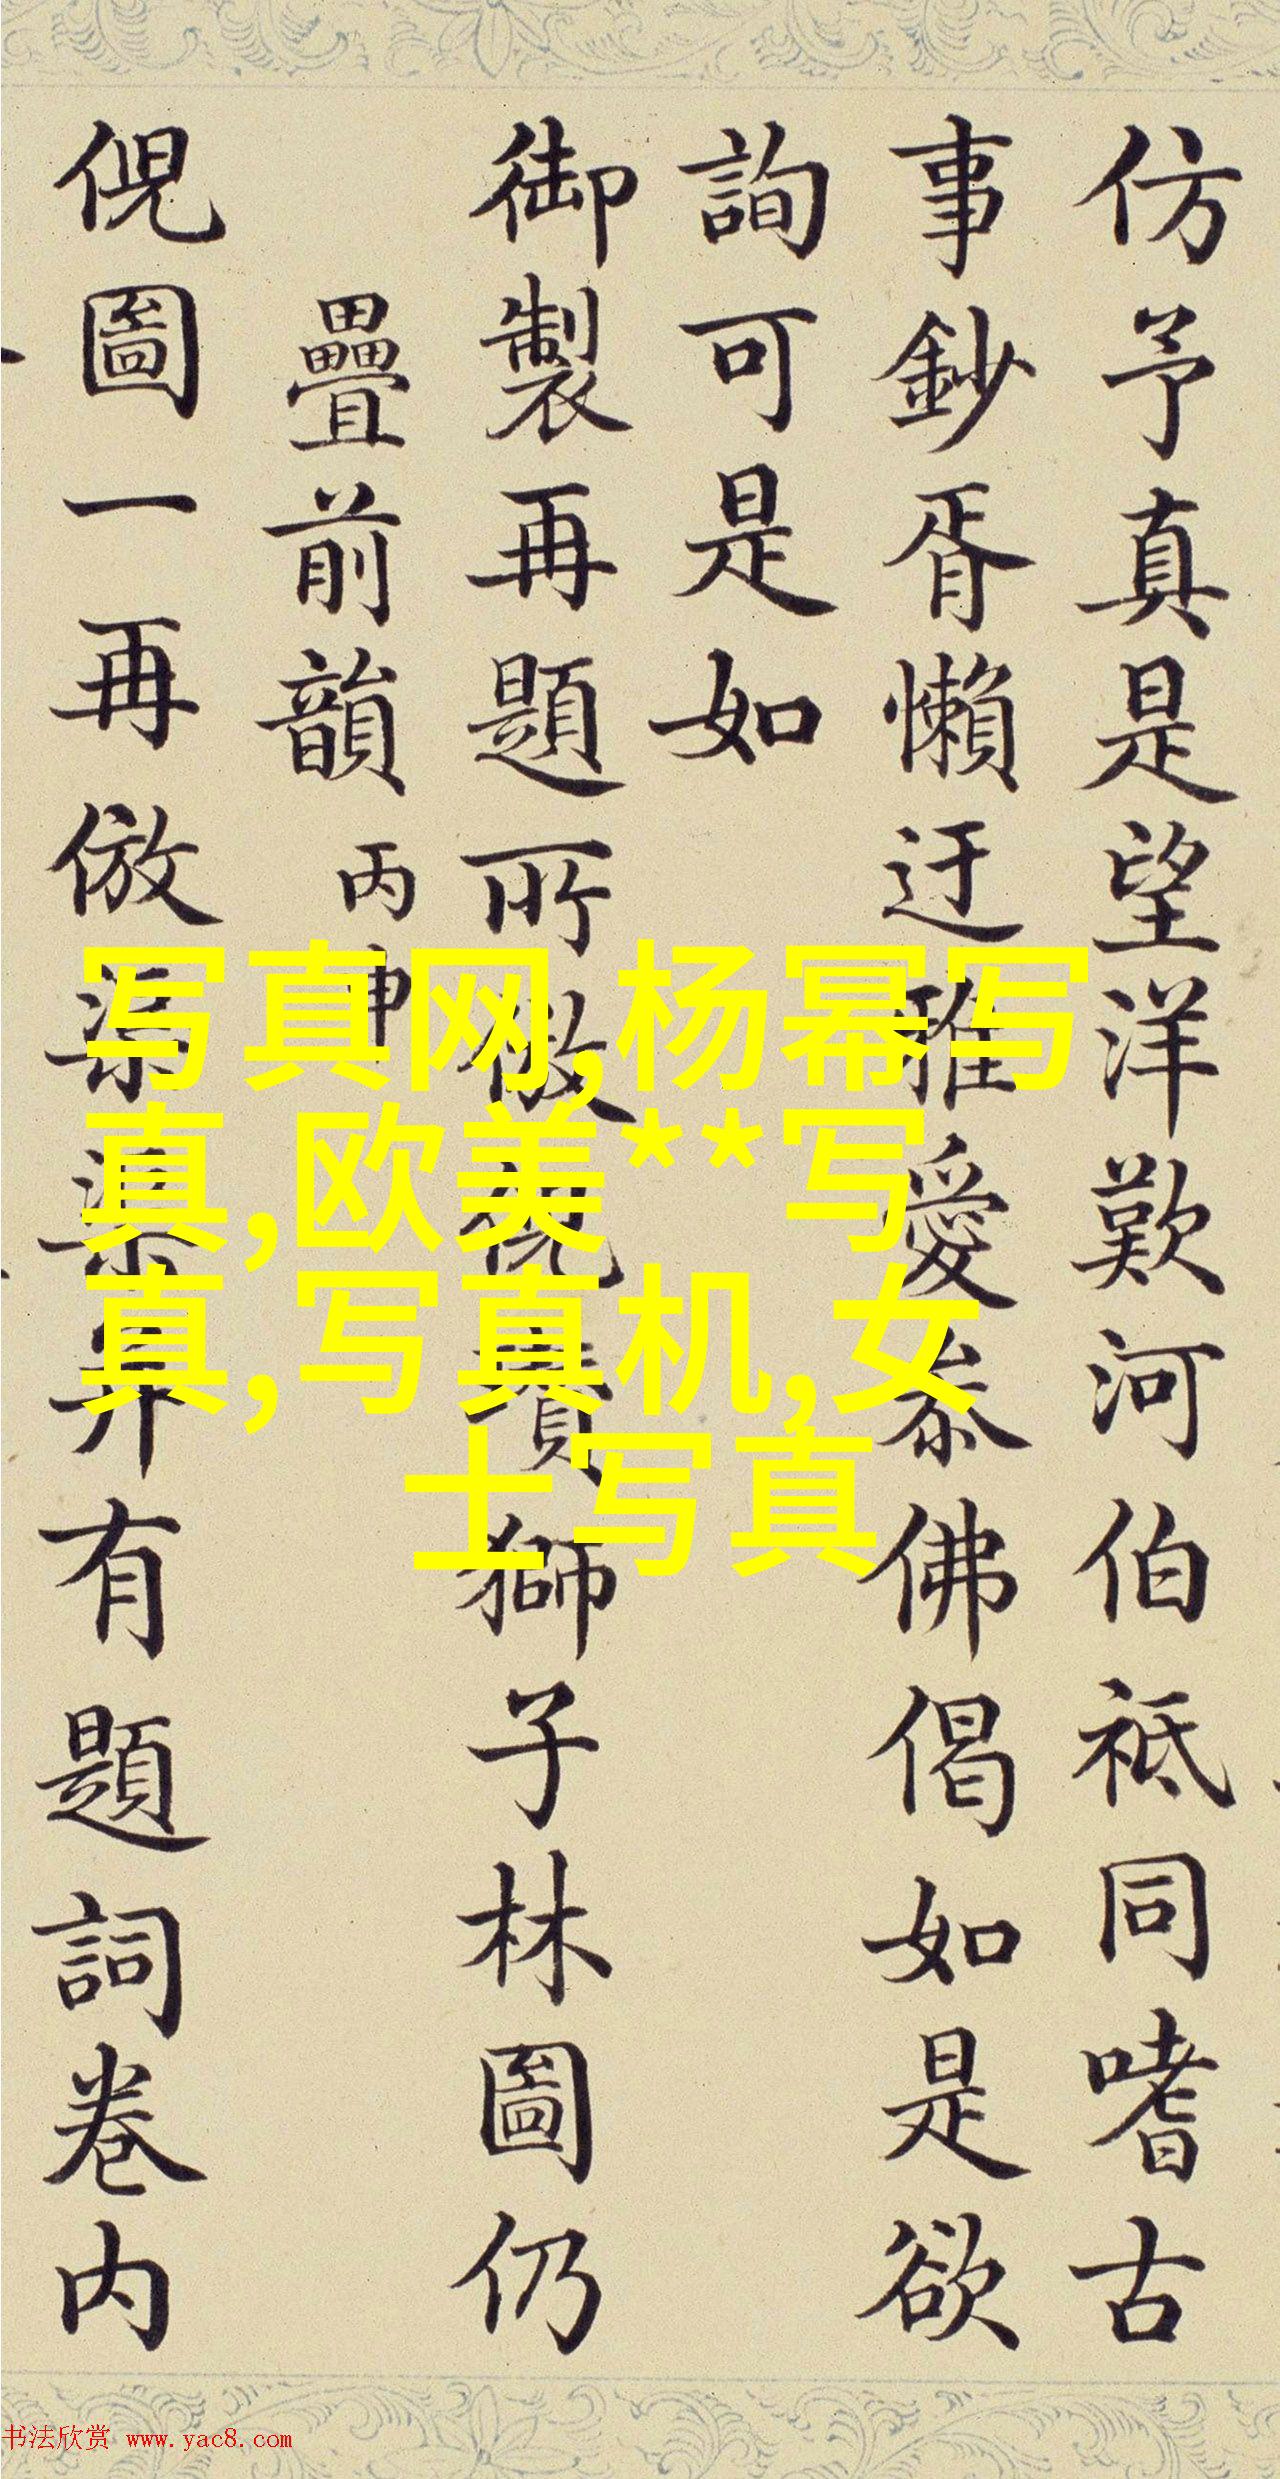 仿予真是望洋歎河伯祗同嗜古
事鈔胥懶迂雅愛泰佛偈如是欲
詢可是如
御製再題所倣倪瓚獅子林圖仍
疊前韻丙申
倪圖一再倣梁梁弆有題詞卷内
写真网,杨幂写
真,欧美**写
真,写真机,女
士写真
书法欣赏 www.yac8.com